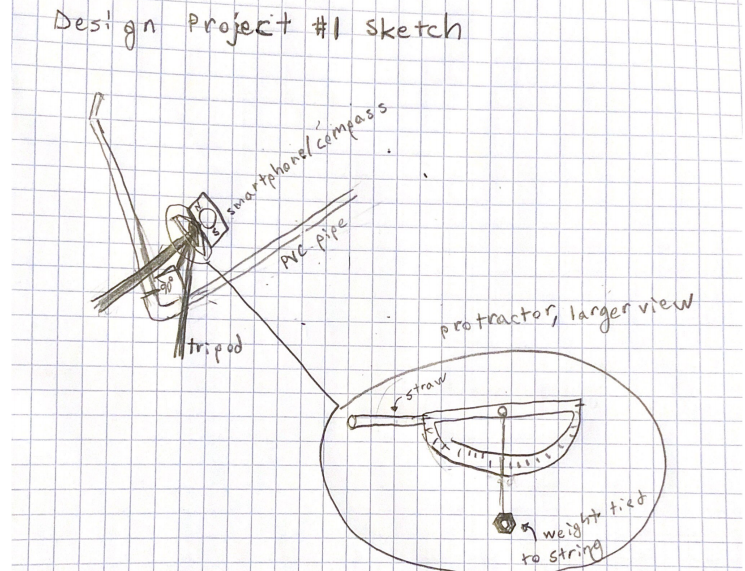 Design Project #1 Sketch
smartphone/compass
N
S
PVC pipe
90°
tripod
protractor, larger view
straw
weight tied
to string